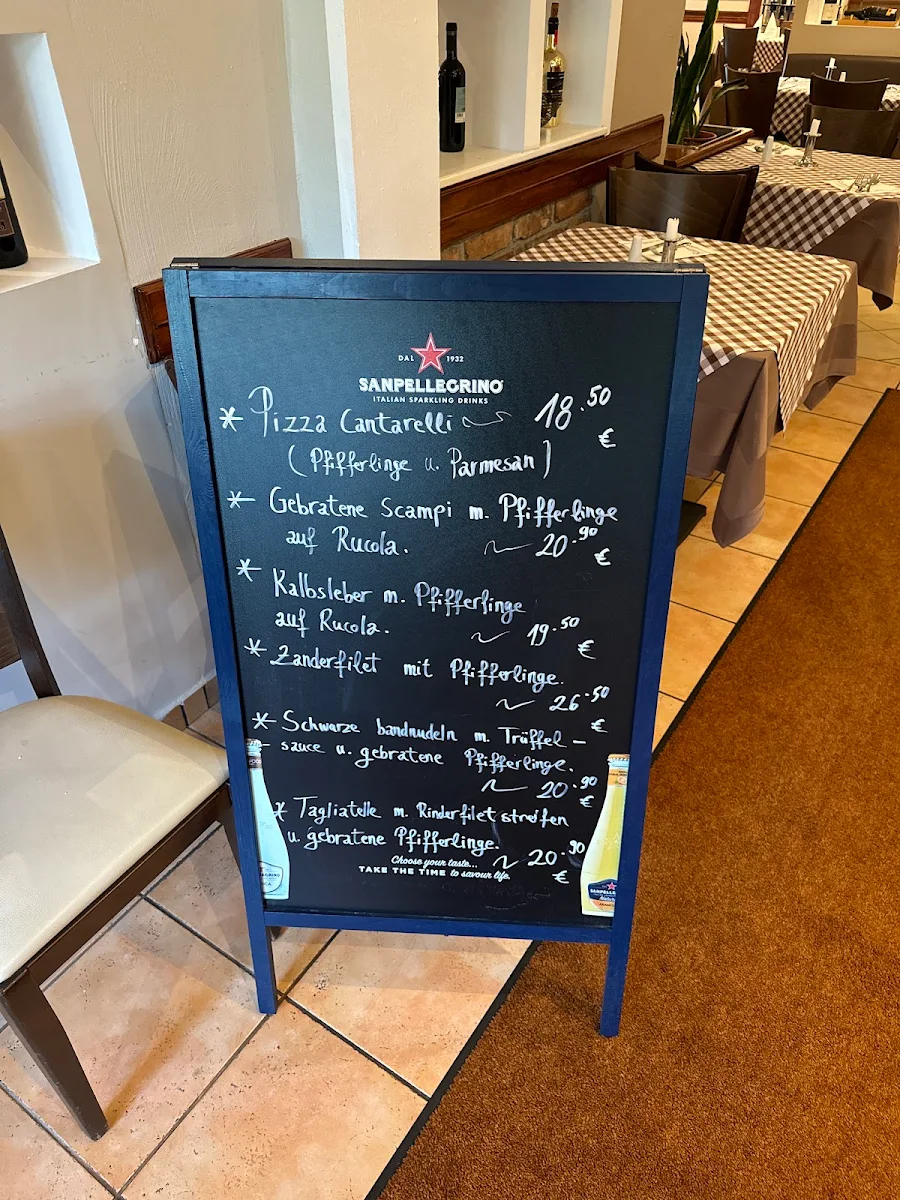 DAL 1932
SANPELLEGRINO
ITALIAN SPARKLING DRINKS
* Pizza Cantarelli ~ 18.50 €
(Pfifferlinge u. Parmesan)
* Gebratene Scampi m. Pfifferlinge
auf Rucola. ~ 20.90 €
* Kalbsleber m. Pfifferlinge
auf Rucola. ~ 19.50 €
* Zanderfilet mit Pfifferlinge.
~ 26.50 €
* Schwarze bandnudeln m. Trüffel-
sauce u. gebratene Pfifferlinge.
~ 20.90 €
* Tagliatelle m. Rinderfiletstreifen
u. gebratene Pfifferlinge.
~ 20.90 €
Choose your taste...
TAKE THE TIME to savour life.
SANPELLEGRINO